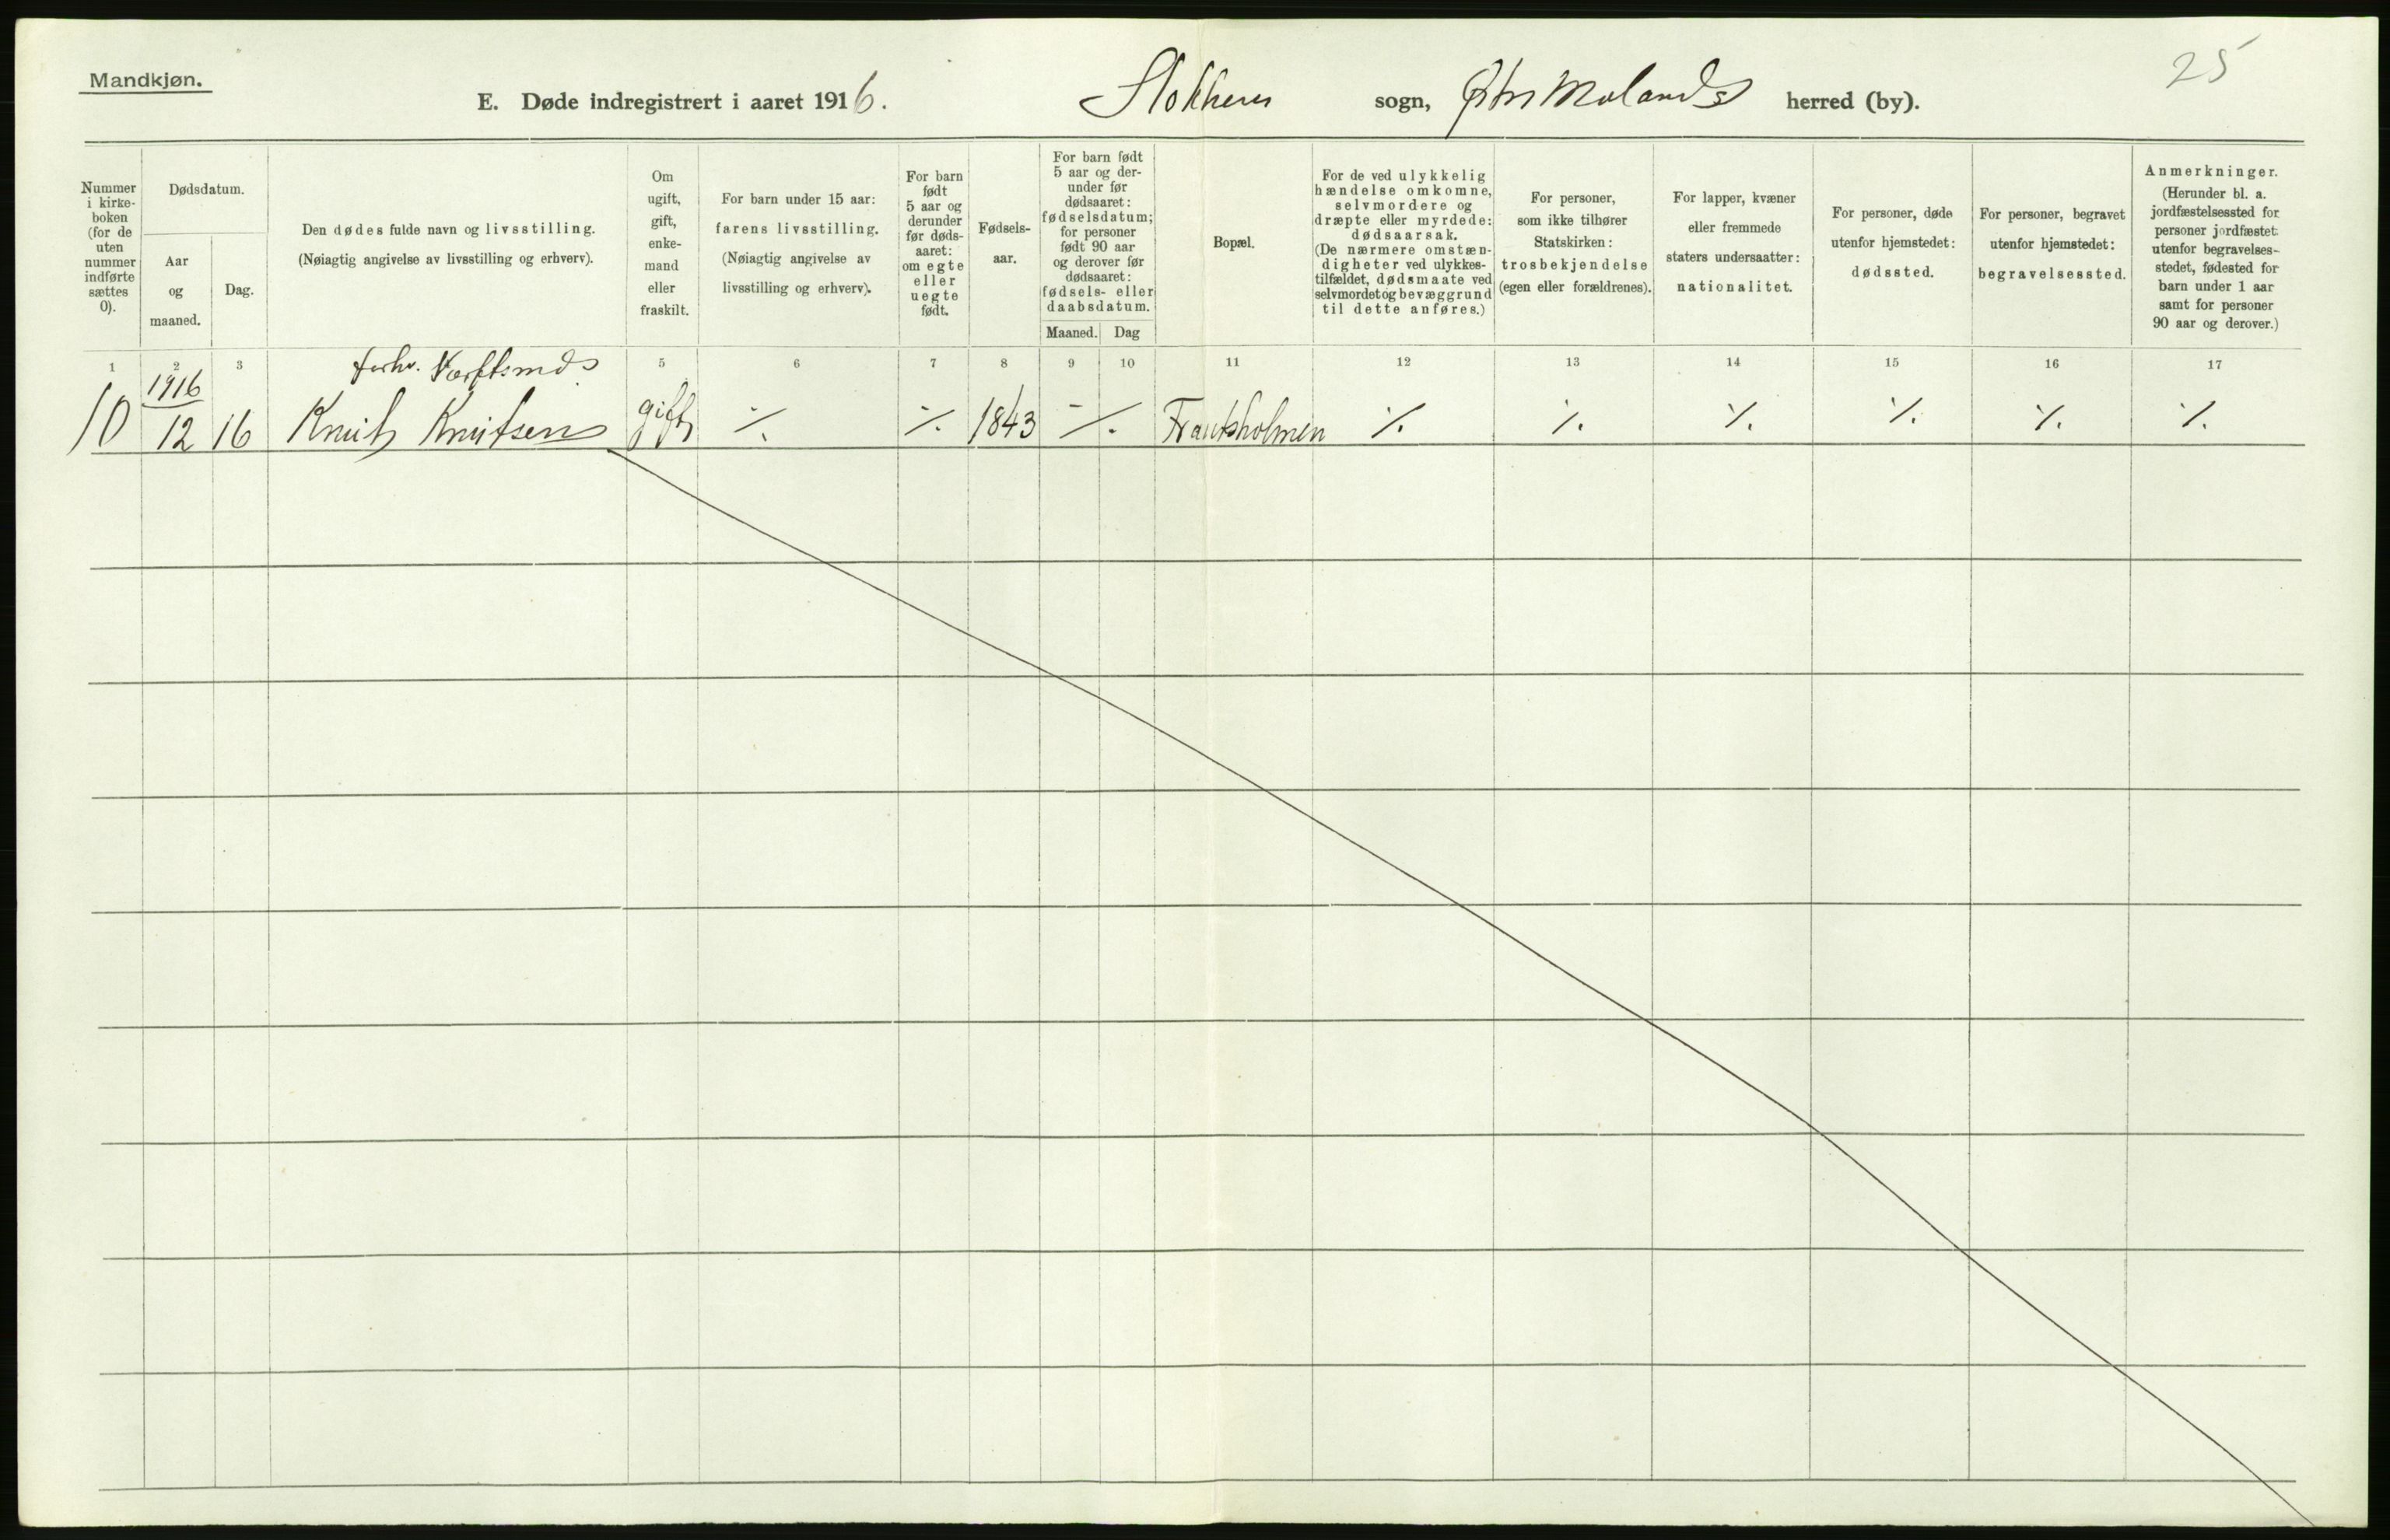 Mandkjøn.
25
E. Døde indregistrert i aaret 1916. Stokken sogn, Østre Molands herred (by).
Nummer
i kirke-
boken
(for de
uten
nummer
indførte
sættes
0).
Dødsdatum.
Aar
og
maaned.
Dag.
Den dødes fulde navn og livsstilling.
(Nøiagtig angivelse av livsstilling og erhverv).
Om
ugift,
gift,
enke-
mand
eller
fraskilt.
For barn under 15 aar:
farens livsstilling.
(Nøiagtig angivelse av
livsstilling og erhverv).
For barn
født
5 aar og
derunder
før døds-
aaret:
om egte
eller
uegte
født.
Fødsels-
aar.
For barn født
5 aar og der-
under før
dødsaaret:
fødselsdatum;
for personer
født 90 aar
og derover før
dødsaaret:
fødsels- eller
daabsdatum.
Maaned. Dag
Bopæl.
For de ved ulykkelig
hændelse omkomne,
selvmordere og
dræpte eller myrdede:
dødsaarsak.
(De nærmere omstæn-
digheter ved ulykkes-
tilfældet, dødsmaate ved
selvmordet og bevæggrund
til dette anføres.)
For personer,
som ikke tilhører
Statskirken:
trosbekjendelse
(egen eller forældrenes).
For lapper, kvæner
eller fremmede
staters undersaatter:
nationalitet.
For personer, døde
utenfor hjemstedet:
dødssted.
For personer, begravet
utenfor hjemstedet:
begravelsessted.
Anmerkninger.
(Herunder bl. a.
jordfæstelsessted for
personer jordfæstet
utenfor begravelses-
stedet, fødested for
barn under 1 aar
samt for personer
90 aar og derover.)
1 2 3 5 6 7 8 9 10 11 12 13 14 15 16 17
1916 forhv.
10 12 16 Knut Knutsen gift ⁒ ⁒ 1843 ⁒ Frantsholmen ⁒ ⁒ ⁒ ⁒ ⁒ ⁒